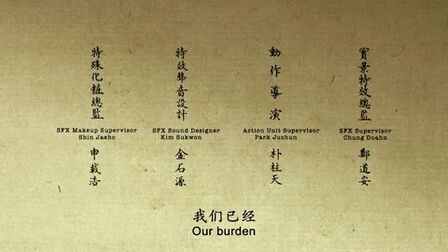 特殊化粧總監
SFX Makeup Supervisor
Shin Jaeho
申載浩
特效聲音設計
SFX Sound Designer
Kim Sukwon
金石源
動作導演
Action Unit Supervisor
Park Juchun
朴柱天
實景特效總監
SFX Supervisor
Chung Doahn
鄭道安
我们已经
Our burden